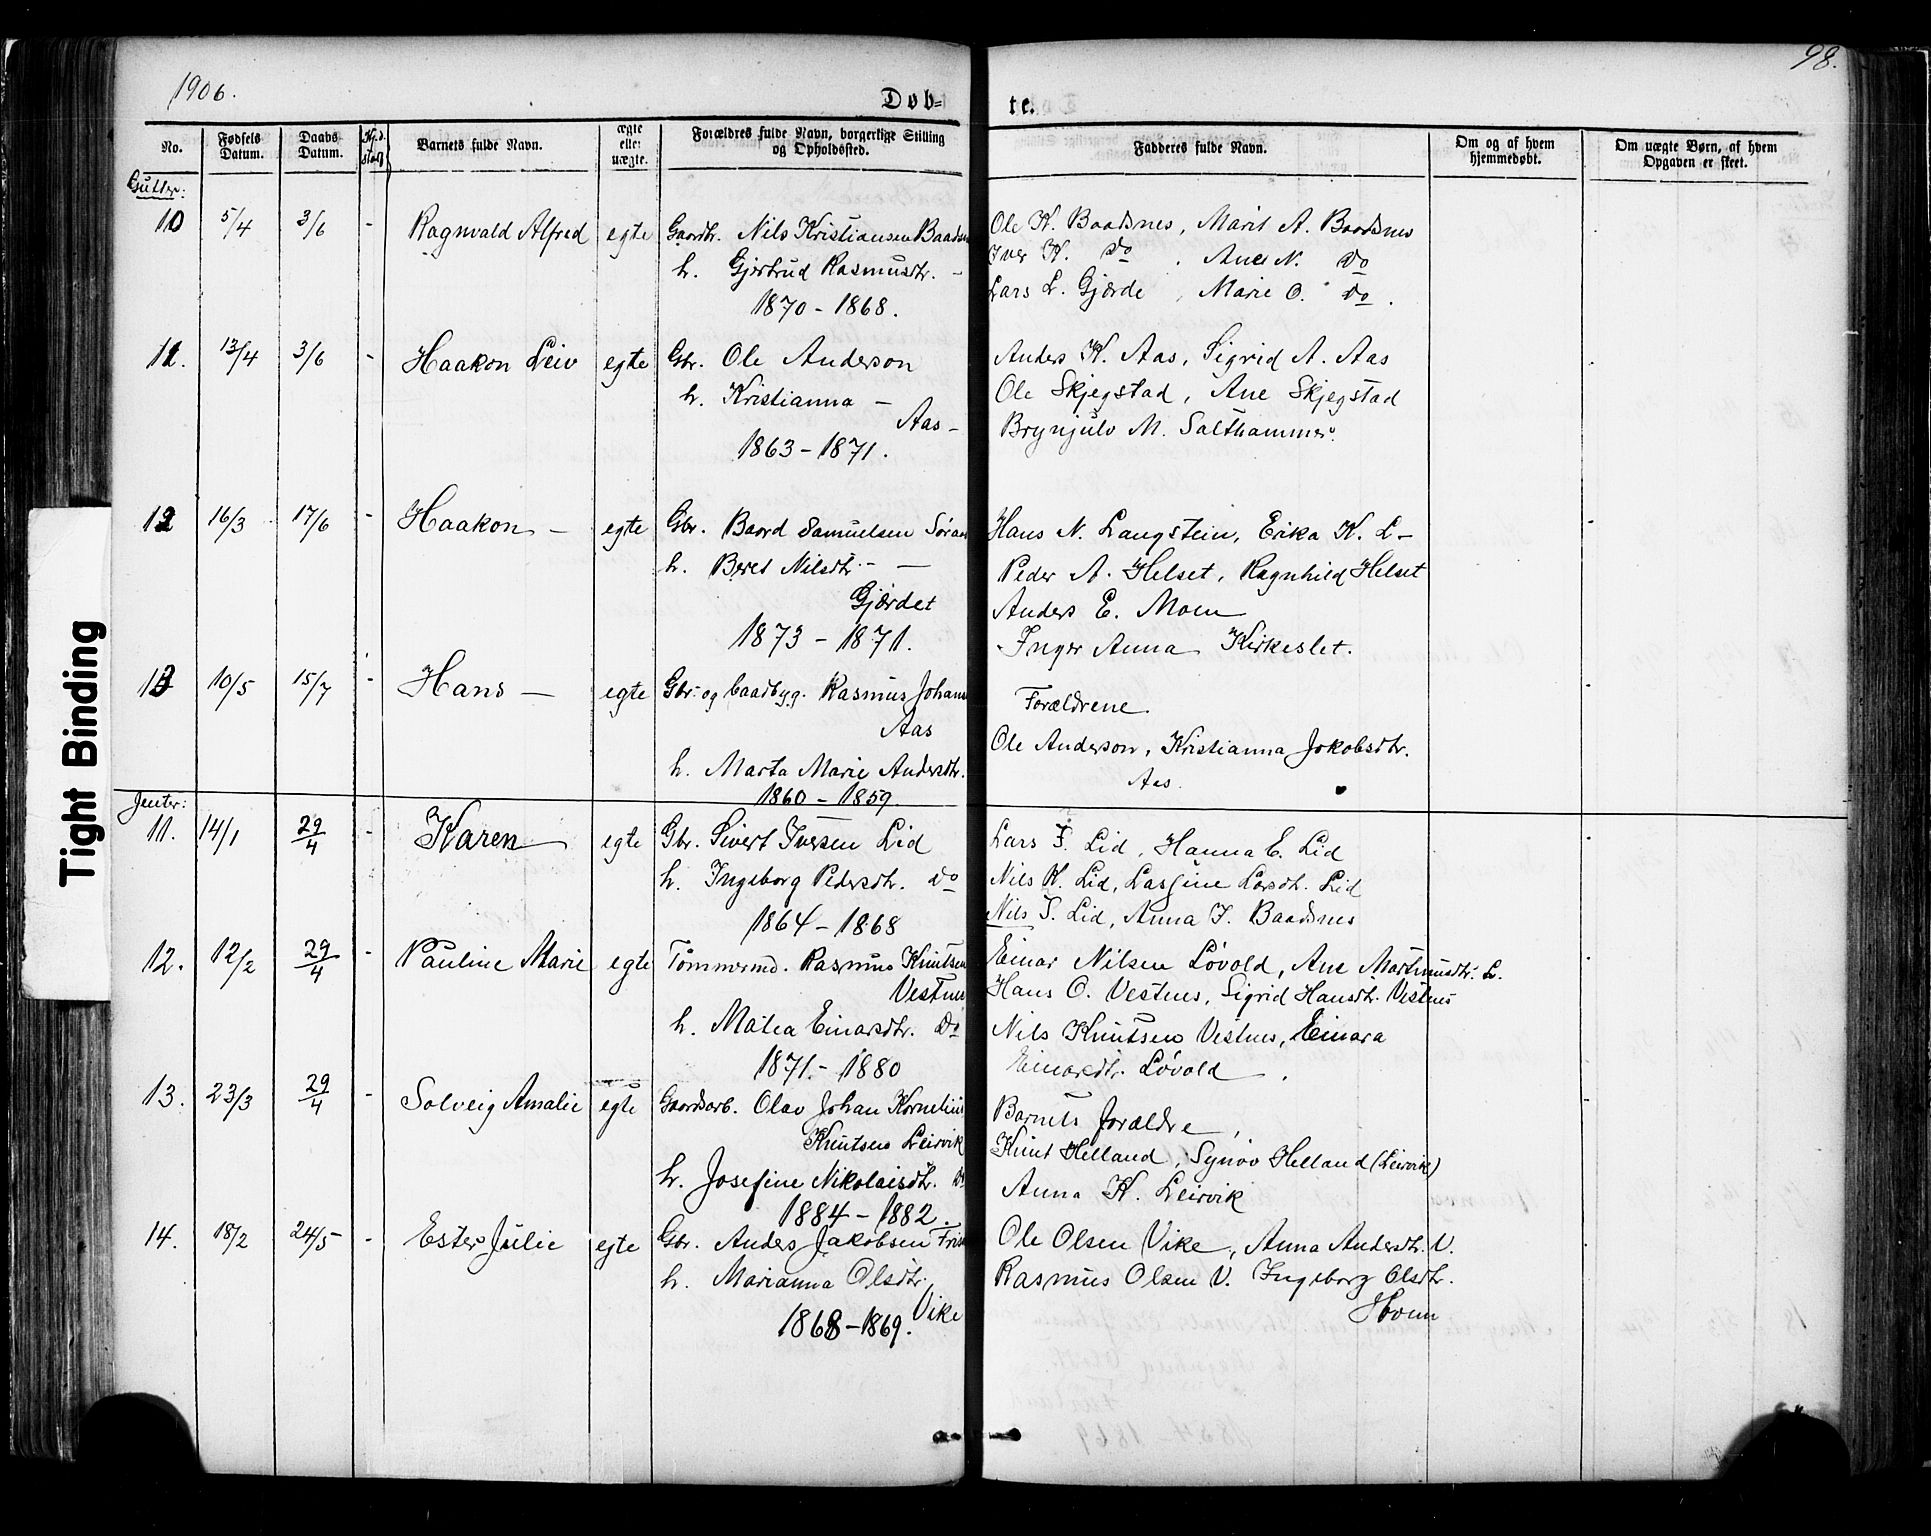 1906.
98.
Døb-
te.
No.
Fødsels Datum.
Daabs Datum.
Barnets fulde Navn.
ægte eller uægte.
Forældres fulde Navn, borgerlige Stilling og Opholdssted.
Fadderes fulde Navn.
Om og af hvem hjemmedøbt.
Om uægte Børn, af hvem Opgaven er skeet.
Gutter:
10 5/4 3/6 - Ragnvald Alfred egte Gaardbr. Nils Kristiansen Baadsn
h. Gjertrud Rasmusdtr. -
1870 - 1868.
Ole K. Baadsnes, Marit A. Baadsnes
Iver K. Do, Ane N. Do
Lars L. Gjærde, Marie O. Do.
11. 13/4 3/6 - Haakon Leiv egte Gbr. Ole Anderson
h. Kristianna -
Aas -
1863 - 1871.
Anders K. Aas, Sigrid A. Aas
Ole Skjegstad, Ane Skjegstad
Brynjulv M. Salthammer.
12 16/3 17/6 - Haakon - egte Gbr. Baard Samuelsen Søraas
h. Beret Nilsdtr. - -
Gjærdet
1873 - 1871.
Hans N. Langstein, Erika K. L -
Peder A. Helset, Ragnhild Helset
Anders E. Moen
Inger Anna Kirkeslet.
13 10/5 15/7 - Hans - egte Gbr. og baadbyg. Rasmus Johans
Aas
h. Marta Marie Andersdtr.
1860 - 1859.
Forældrene.
Ole Anderson, Kristianna Jokobsdtr.
Aas.
Jenter:
11. 14/1 29/4 - Karen egte Gbr. Sivert Iversen Lid
h. Ingeborg Pedersdtr. Do
1864 - 1868
Lars S. Lid, Hanna E. Lid
Nils K. Lid, Lassine Larsdtr. Lid
Nils S. Lid, Anna I. Baadsnes
12. 12/2 29/4 - Pauline Marie egte Tømmermd. Rasmus Knutsen
Vestnes
h. Malea Einarsdtr. Do
1871. - 1880
Einar Nilsen Løvold, Ane Martinusdtr. L.
Hans O. Vestnes, Sigrid Hansdtr. Vestnes
Nils Knutsen Vestnes, Einara
Einarsdtr. Løvold.
13. 23/3 29/4 - Solveig Amalie egte Gaardsarb. Olav Johan Kornelius
Knutsen Leirvik
h. Josefine Nikolaisdtr. Do
1884 - 1882.
Barnets forældre,
Knut Helland, Synøv Helland (Leirvik)
Anna K. Leirvik
14. 18/2 24/5 - Ester Julie egte Gbr. Anders Jakobsen Fris
h. Marianna Olsdtr.
Vike
1868 - 1869.
Ole Olsen Vike, Anna Andersdtr. V.
Rasmus Olsen V. Ingeborg Olsdtr.
Hovm
Tight Binding